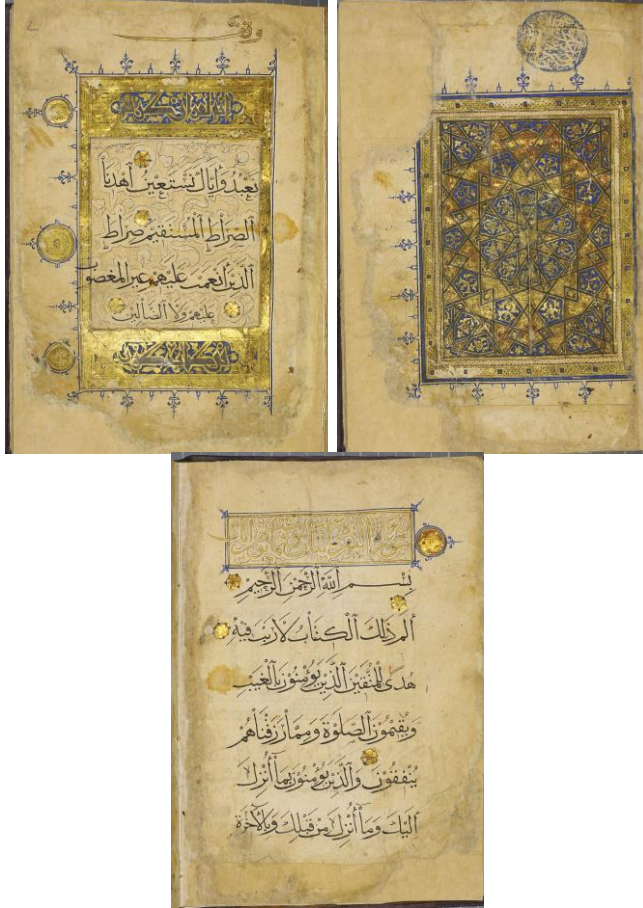 وقف
نَعْبُدُ وَإِيَّاكَ نَسْتَعِينُ اهْدِنَا
الصِّرَاطَ الْمُسْتَقِيمَ صِرَاطَ
الَّذِينَ أَنْعَمْتَ عَلَيْهِمْ غَيْرِ الْمَغْضُوبِ
عَلَيْهِمْ وَلَا الضَّالِّينَ
سورة البقرة
بِسْمِ اللَّهِ الرَّحْمَنِ الرَّحِيمِ
الم ذَلِكَ الْكِتَابُ لَا رَيْبَ فِيهِ
هُدًى لِلْمُتَّقِينَ الَّذِينَ يُؤْمِنُونَ بِالْغَيْبِ
وَيُقِيمُونَ الصَّلَوةَ وَمِمَّا رَزَقْنَاهُمْ
يُنْفِقُونَ وَالَّذِينَ يُؤْمِنُونَ بِمَا أُنْزِلَ
إِلَيْكَ وَمَا أُنْزِلَ مِنْ قَبْلِكَ وَبِالْآخِرَةِ